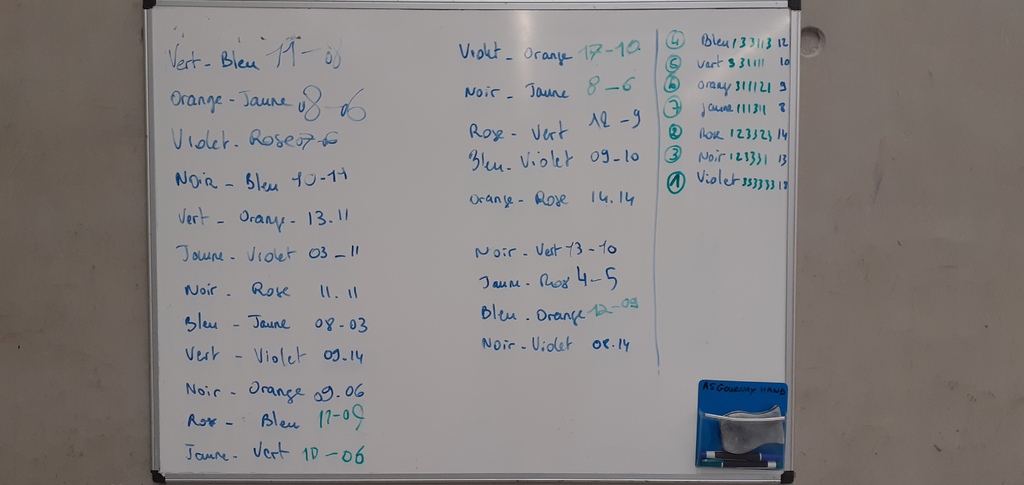 Vert - Bleu 11-09
Orange - Jaune 08-06
Violet - Rose 07-6
Noir - Bleu 10-11
Vert - Orange - 13.11
Jaune - Violet 03-11
Noir - Rose 11.11
Bleu - Jaune 08-03
Vert - Violet 09.14
Noir - Orange 09.06
Rose - Bleu 12-09
Jaune - Vert 10-06
Violet - Orange 17-10
Noir - Jaune 8-6
Rose - Vert 12-9
Bleu - Violet 09-10
Orange - Rose 14.14
Noir - Vert 13-10
Jaune - Rose 4-5
Bleu - Orange 12-09
Noir - Violet 08.14
④ Bleu 133113 12
⑤ Vert 331111 10
⑥ Orang 311121 9
⑦ Jaune 111311 8
② Rose 123323 14
③ Noir 123331 13
① Violet 333333 18